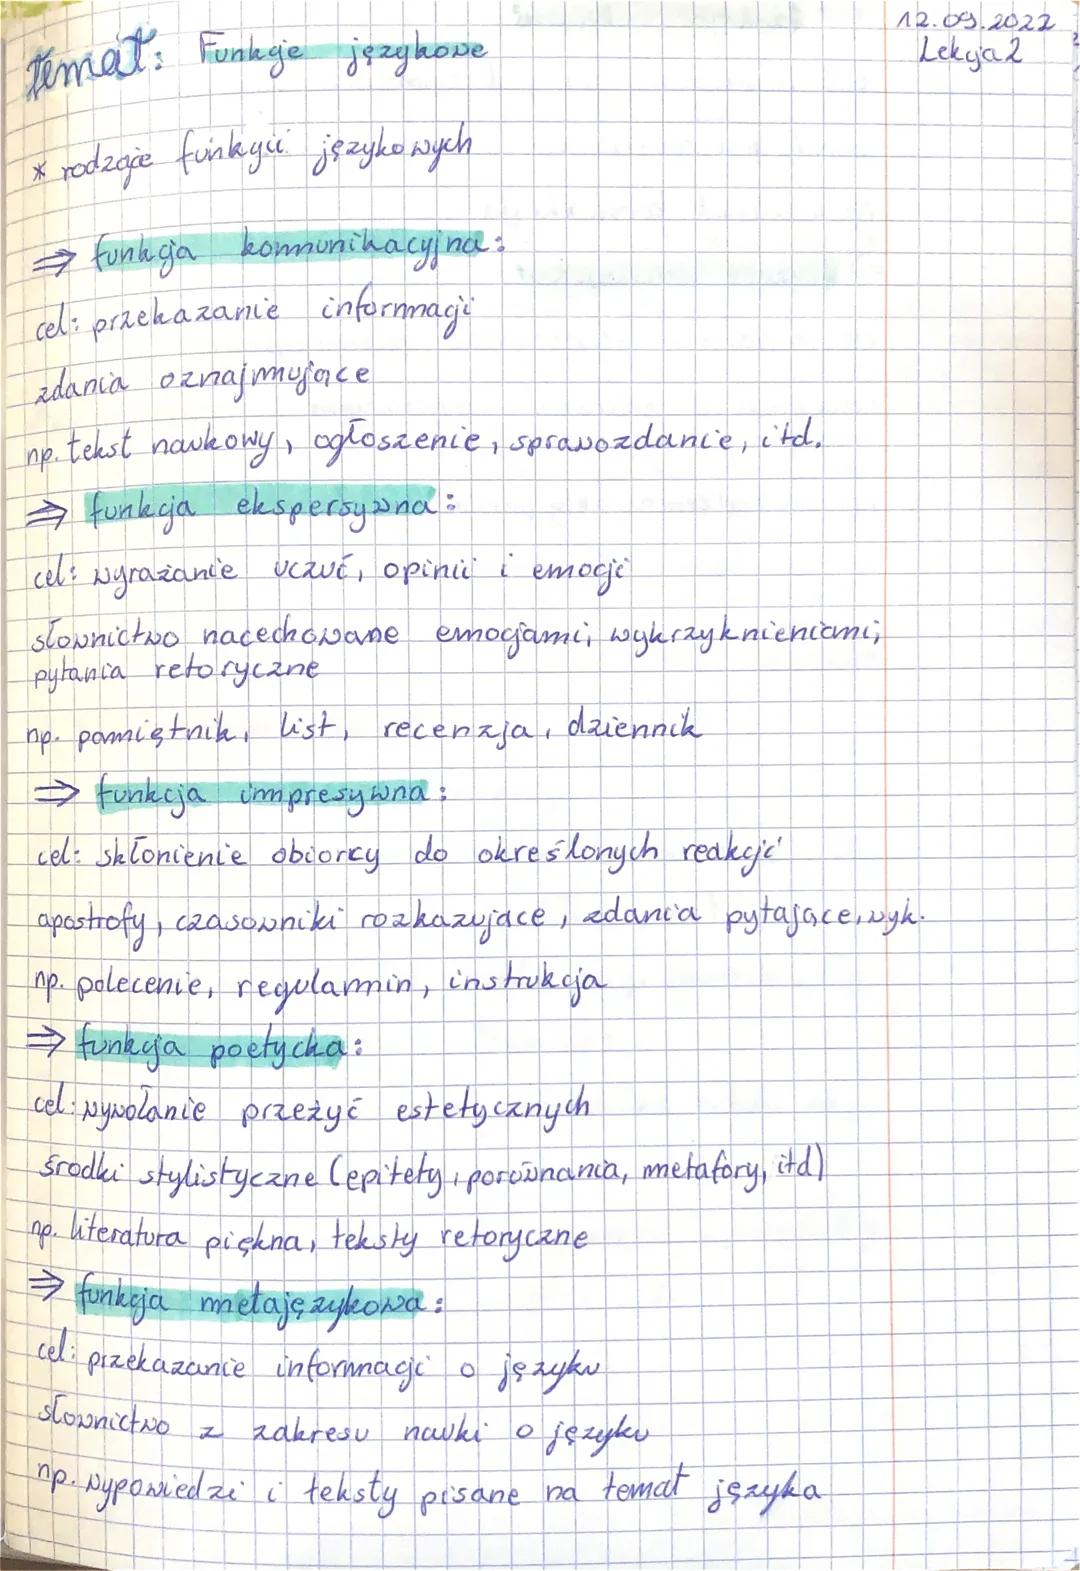 12.09.2022
Lekcja 2
Temat: Funkcje językowe
* rodzaje funkcji językowych
⇒ funkcja komunikacyjna:
cel: przekazanie informacji
zdania oznajmujące
np. tekst naukowy, ogłoszenie, sprawozdanie, itd.
⇒ funkcja ekspersywna:
cel: wyrażanie uczuć, opinii i emocji
słownictwo nacechowane emocjami; wykrzyknieniami;
pytania retoryczne
np. pamiętnik, list, recenzja, dziennik
⇒ funkcja impresywna:
cel: skłonienie obiorcy do określonych reakcji
apostrofy, czasowniki rozkazujące, zdania pytające, wyk.
np. polecenie, regulamin, instrukcja
⇒ funkcja poetycka:
cel: wywołanie przeżyć estetycznych
środki stylistyczne (epitety, porównania, metafory, itd)
np. literatura piękna, teksty retoryczne
⇒ funkcja metajęzykowa:
cel: przekazanie informacji o języku
słownictwo z zakresu nauki o języku
np. wypowiedzi i teksty pisane na temat języka